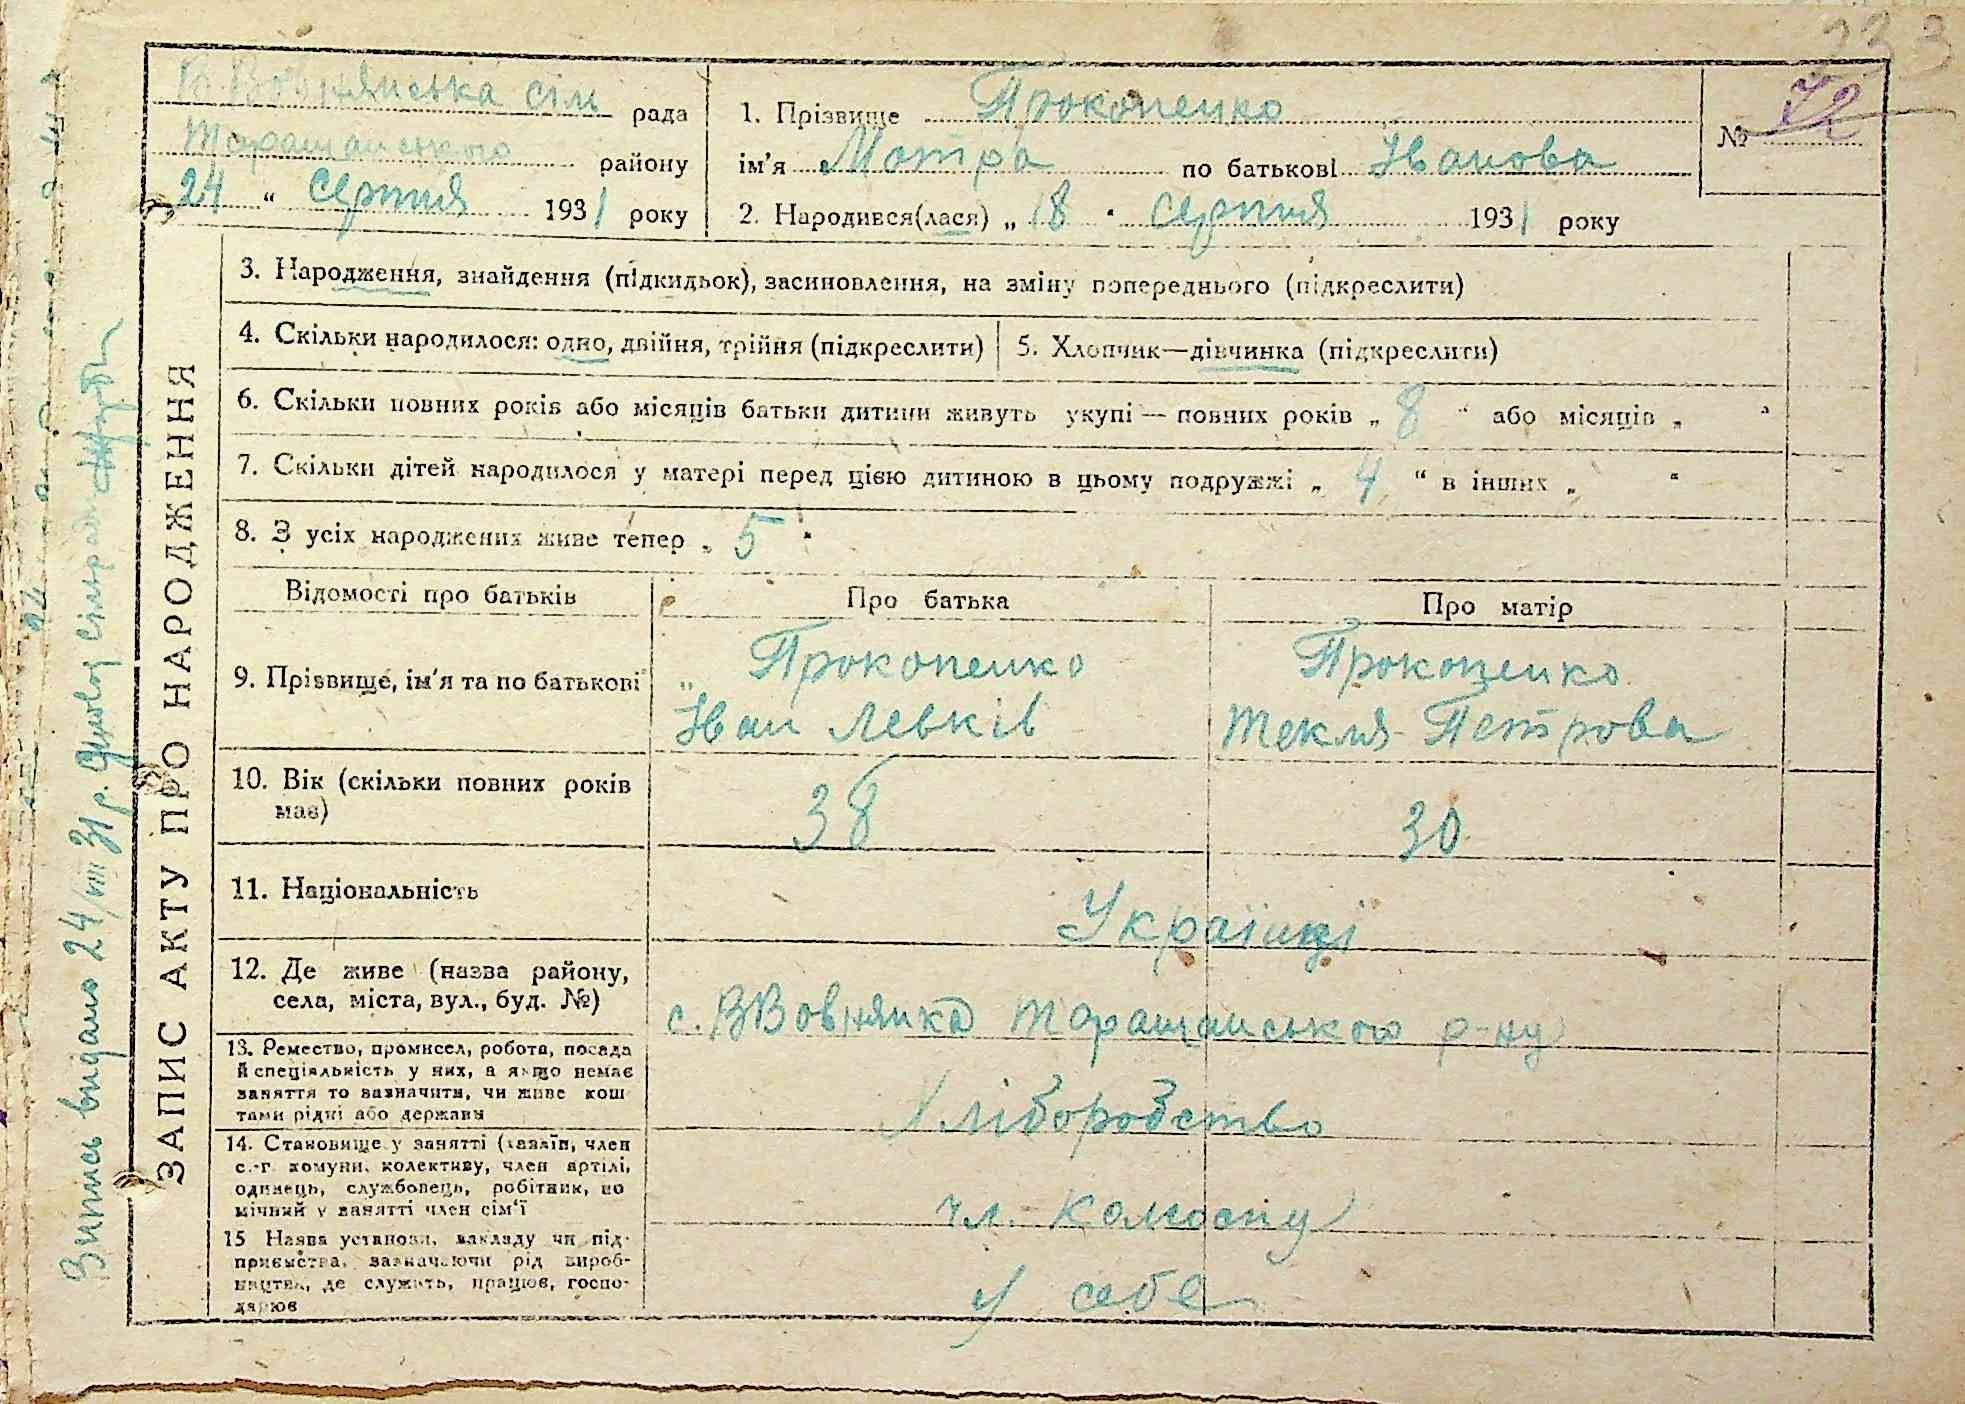 233
В Вовнянська сіл рада
Таращанського району
24 " серпня 1931 року
1. Прізвище Прокопенко
ім'я Мотра по батькові Іванова
2. Народився(лася) „ 18 " серпня 1931 року
№ 72
ЗАПИС АКТУ ПРО НАРОДЖЕННЯ
3. Народження, знайдення (підкидьок), засиновлення, на зміну попереднього (підкреслити)
4. Скільки народилося: одно, двійня, трійня (підкреслити)
5. Хлопчик—дівчинка (підкреслити)
6. Скільки повних років або місяців батьки дитини живуть укупі — повних років „ 8 " або місяців „ "
7. Скільки дітей народилося у матері перед цією дитиною в цьому подружжі „ 4 " в інших „ "
8. З усіх народжених живе тепер „ 5 "
Відомості про батьків
Про батька
Про матір
9. Прізвище, ім'я та по батькові
Прокопенко
Іван Левків
Прокопенко
Текля Петрова
10. Вік (скільки повних років
має)
38
30
11. Національність
Українці
12. Де живе (назва району,
села, міста, вул., буд. №)
с. ВВовнянка Таращанського р-ну
13. Ремество, промисел, робота, посада
й спеціяльність у них, а якщо немає
заняття то зазначити, чи живе кош
тами рідні або держави
Хліборобство
14. Становище у занятті (хазяїн, член
с.-г. комуни, колективу, член артілі,
одинець, службовець, робітник, по
мічний у занятті член сім'ї
чл. колгоспу
15 Назва установи, закладу чи під-
приємства, зазначаючи рід вироб-
ництва, де служить, працює, госпо-
дарює
у себе
Випись видано 24/VIII 31 р. Голова Сільради